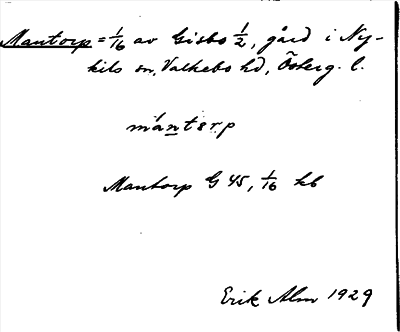 Mantorp = 1/16 av Gisbo 1/2, gård i Ny-
kils sn, Valkebo hd, Österg. l.
mántsrp
Mantorp G 45, 1/16 kb
Erik Alm 1929